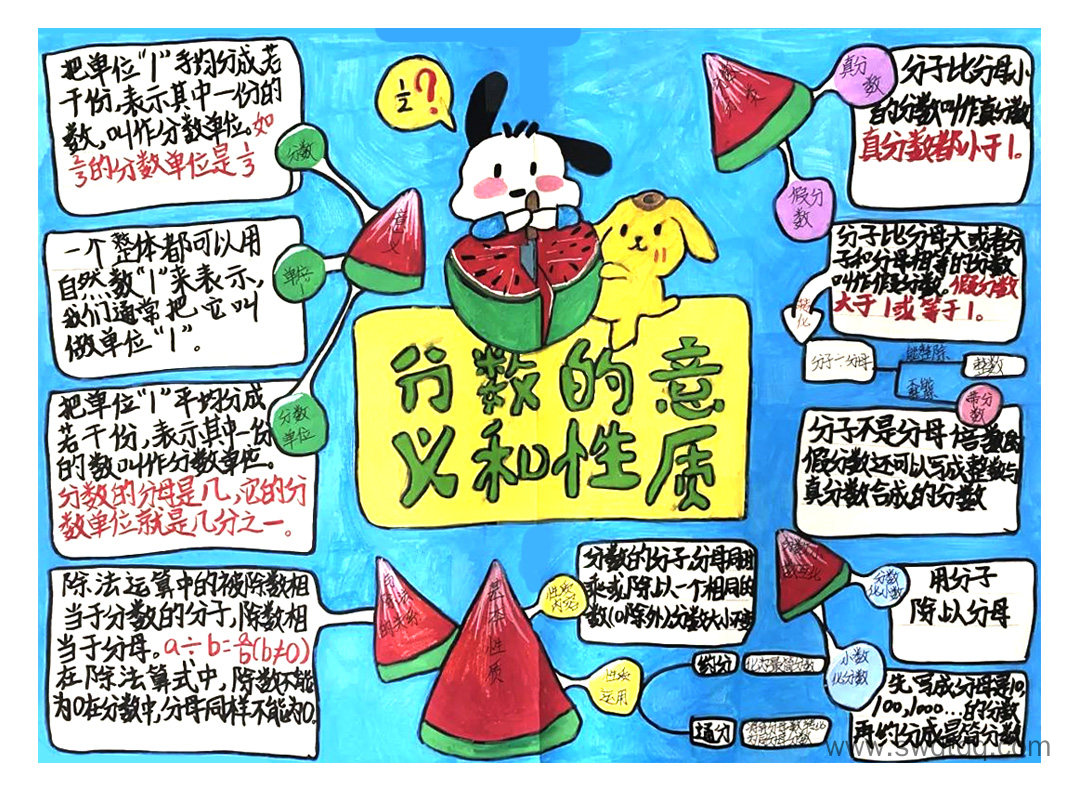 把单位“1”平均分成若
干份,表示其中一份的
数,叫作分数单位。如
2/3的分数单位是1/3
分数
一个整体都可以用
自然数“1”来表示,
我们通常把它叫
做单位“1”。
单位
1
意义
把单位“1”平均分成
若干份,表示其中一份
的数叫作分数单位。
分数的分母是几,它的分
数单位就是几分之一。
分数
单位
1/2?
分数的意
义和性质
真分
数
分子比分母小
的分数叫作真分数
真分数都小于1。
假分
数
分子比分母大或者分
子和分母相等的分数
叫作假分数。假分数
大于1或等于1。
转化
分子÷分母
能整除
整数
不能
整除
带分
数
分子不是分母倍数的
假分数还可以写成整数与
真分数合成的分数
除法运算中的被除数相
当于分数的分子,除数相
当于分母。a÷b=a/b(b≠0)
在除法算式中,除数不能
为0在分数中,分母同样不能为0。
基本性质
性质
内容
分数的分子,分母同时
乘或除上一个相同的
数(0除外)分数大小不变
性质
运用
约分
化成最简分数
通分
分数
化小数
用分子
除上以分母
小数
化分数
先写成分母是10,
100,1000...的分数
再约分成最简分数